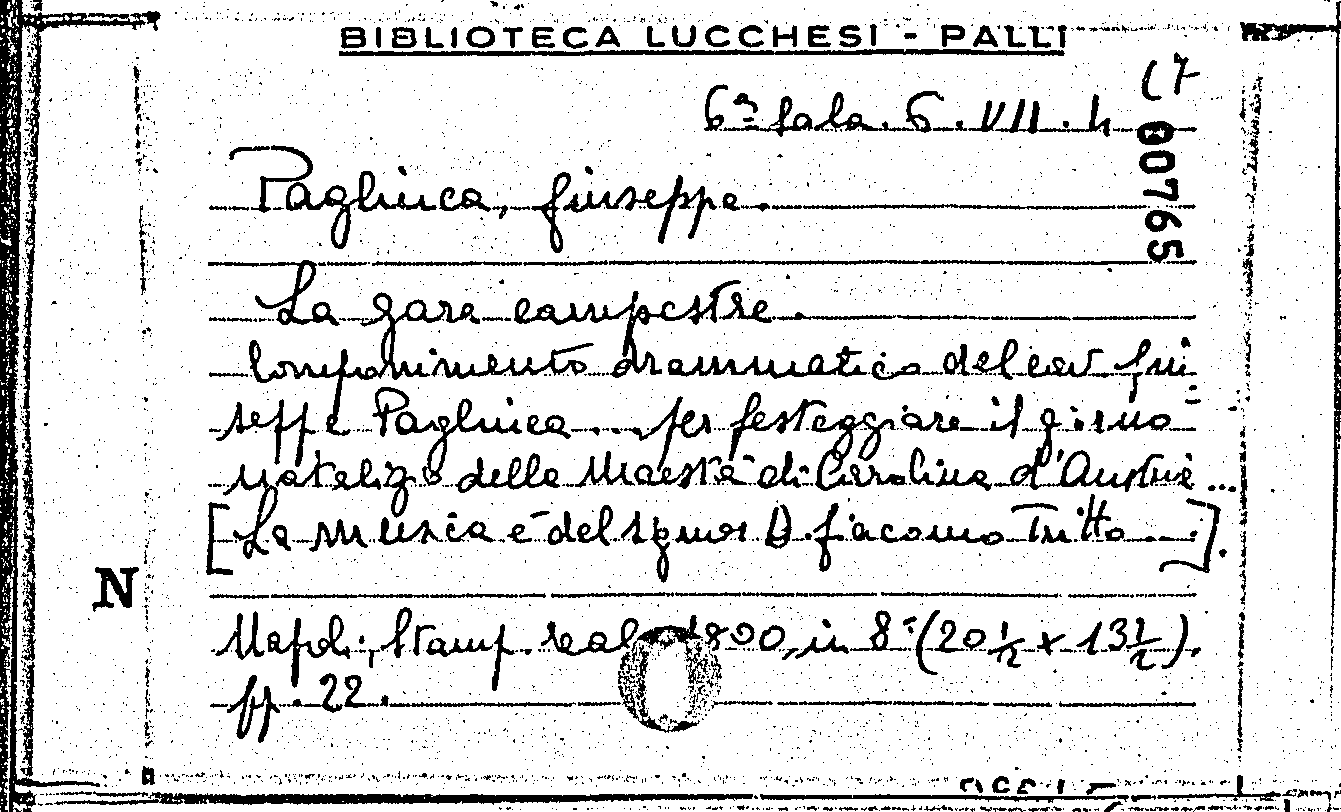 BIBLIOTECA LUCCHESI - PALLI
(7
6ª Sala. 6. VII. 4
00765
Pagliuca, Giuseppe.
La gara campestre.
Componimento drammatico del cav Giu-
seppe Pagliuca ... per festeggiare il giorno
natalizio della Maestà di Carolina d'Austria ...
[La musica è del signor D. Giacomo Tritto ...].
N
Napoli, Stamp. reale 1800, in 8° (20 ½ x 13 ½).
pp. 22.